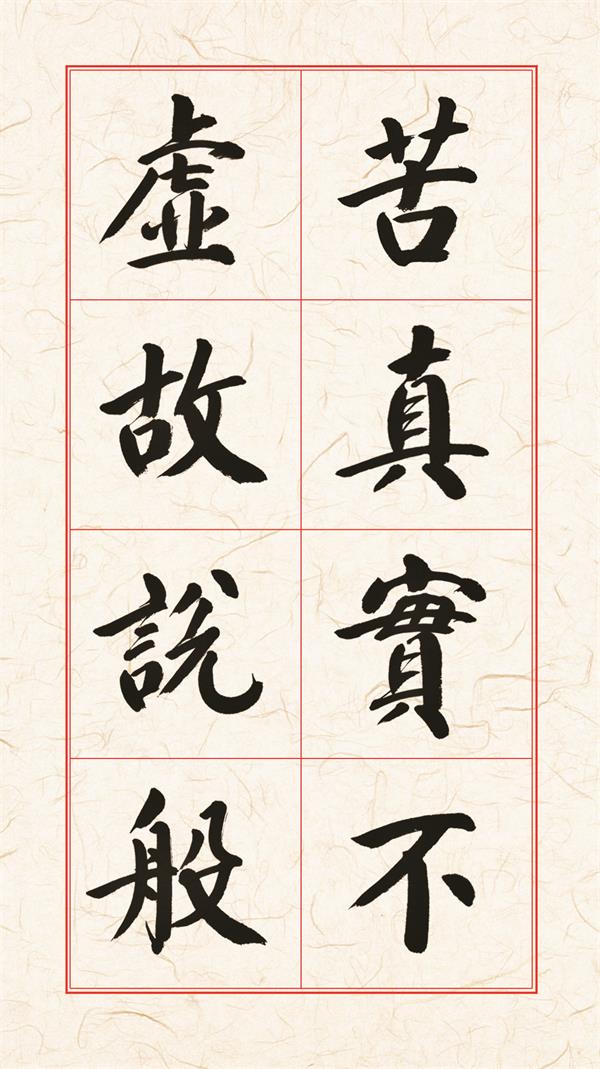 苦真實不
虛故說般